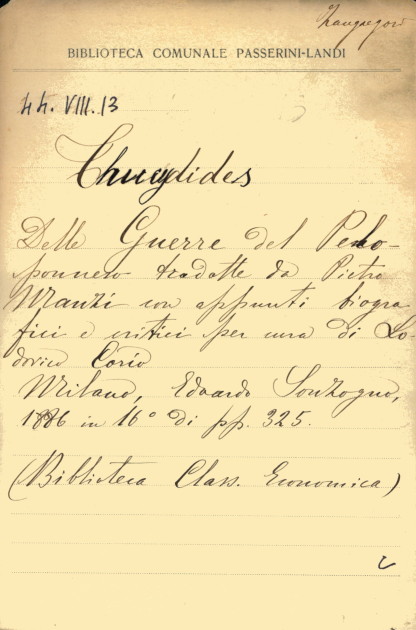 BIBLIOTECA COMUNALE PASSERINI-LANDI
44. VIII. 13
Thucydides
Delle Guerre del Pelo-
ponneso tradotte da Pietro
Manzi con appunti biogra-
fici e critici per cura di Lo-
dovico Corio
Milano, Edoardo Sonzogno,
1886 in 16° di pp. 325.
(Biblioteca Class. Economica)